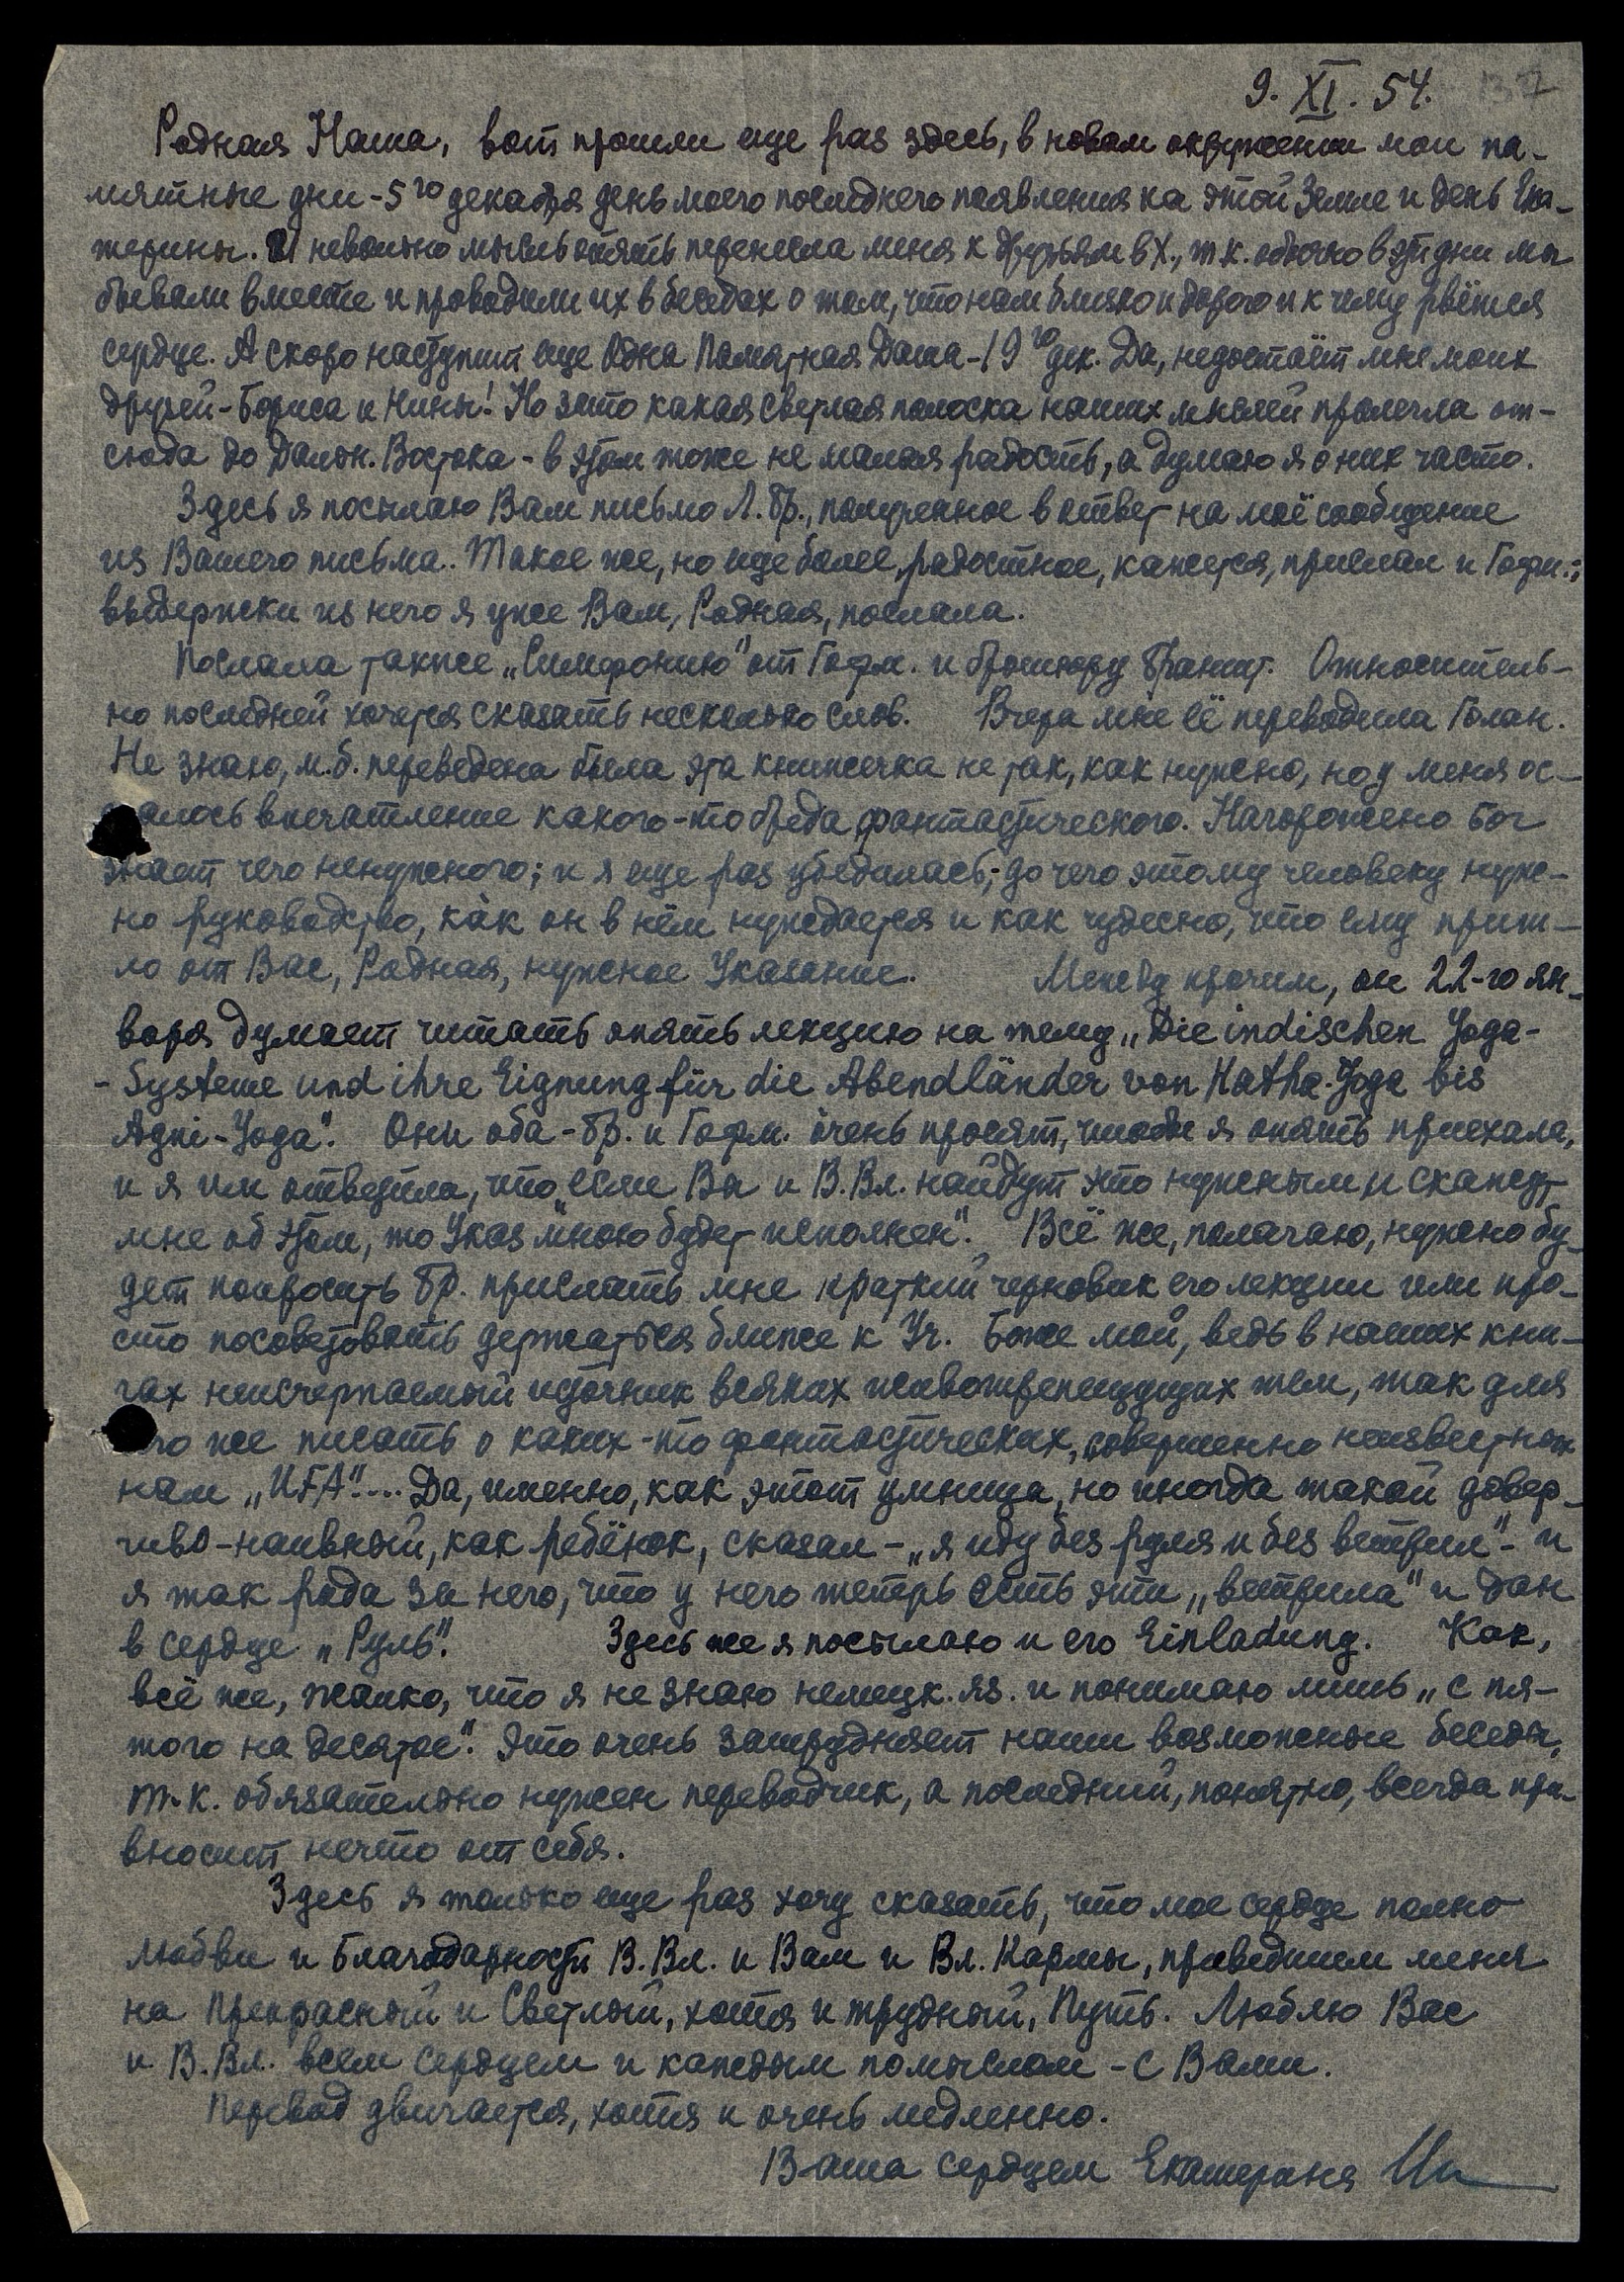 9. XI. 54. 137
Родная Наша, вот прошли еще раз здесь, в новом окружении мои па-
мятные дни - 5го декабря день моего последнего появления на этой Земле и день Ека-
терины. И невольно мысль опять перенесла меня к друзьям в Х., т.к. обычно в эти дни мы
бывали вместе и проводили их в беседах о том, что нам близко и дорого и к чему рвётся
сердце. А скоро наступит еще Одна Памятная Дата - 19го дек. Да, недостаёт мне моих
друзей - Бориса и Нины! Но зато какая светлая полоска наших мыслей пролегла от-
сюда до Дальн. Востока - в этом тоже не малая радость, а думаю я о них часто.
Здесь я посылаю Вам письмо Л. Бр., полученное в ответ на моё сообщение
из Вашего письма. Такое же, но еще более, радостное, кажется, прислал и Гофм.;
выдержки из него я уже Вам, Родная, послала.
Послала также „Симфонию" от Гофм. и брошюру Брандт. Относитель-
но последней хочется сказать несколько слов. Вчера мне её переводила Голан.
Не знаю, м.б. переведена была эта книжечка не так, как нужно, но у меня ос-
талось впечатление какого-то бреда фантастического. Нагорожено Бог
знает чего ненужного; и я еще раз убедилась, до чего этому человеку нуж-
но руководство, как он в нём нуждается и как чудесно, что ему приш-
ло от Вас, Родная, нужное Указание. Между прочим, он 22-го ян-
варя думает читать опять лекцию на тему „Die indischen Yoga-
- Systeme und ihre Eignung für die Abendländer von Hatha-Yoga bis
Agni-Yoga". Они оба - Бр. и Гофм. очень просят, чтобы я опять приехала,
и я им ответила, что „если Вы и В.Вл. найдут это нужным и скажут
мне об этом, то Указ мною будет исполнен". Всё же, полагаю, нужно бу-
дет попросить Бр. прислать мне краткий черновик его лекции или про-
сто посоветовать держаться ближе к Уч. Боже мой, ведь в наших кни-
гах неисчерпаемый источник всяких животрепещущих тем, так для
чего же писать о каких-то фантастических, совершенно неизвестных
нам „UFA".... Да, именно, как этот умница, но иногда такой довер-
чиво-наивный, как ребёнок, сказал - „я иду без руля и без ветрил" - и
я так рада за него, что у него теперь есть эти „ветрила" и дан
в сердце „Руль". Здесь же я посылаю и его Einladung. Как,
всё же, жалко, что я не знаю немецк. яз. и понимаю лишь „с пя-
того на десятое". Это очень затрудняет наши возможные беседы,
т.к. обязательно нужен переводчик, а последний, понятно, всегда при-
вносит нечто от себя.
Здесь я только еще раз хочу сказать, что мое сердце полно
любви и благодарности В.Вл. и Вам и Вл. Кармы, приведшем меня
на Прекрасный и Светлый, хотя и трудный, Путь. Люблю Вас
и В.Вл. всем сердцем и каждым помыслом - с Вами.
Перевод двигается, хотя и очень медленно.
Ваша сердцем Екатерина